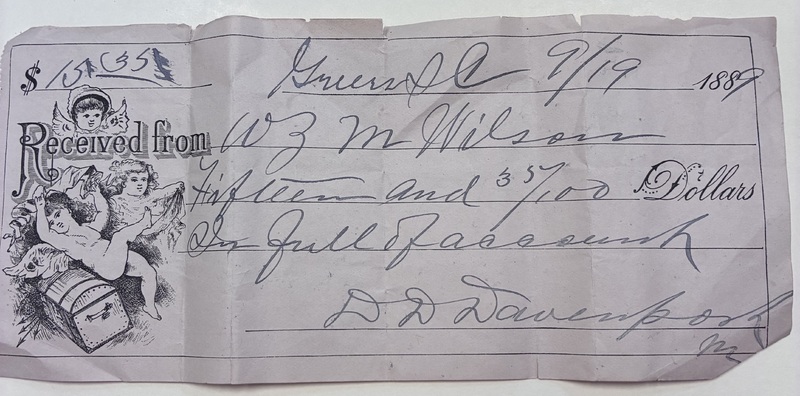 $ 15 35 Greers S C 9/19 1889
Received from W Z M Wilson
Fifteen and 35/100 Dollars
In full of account
D D Davenport
m